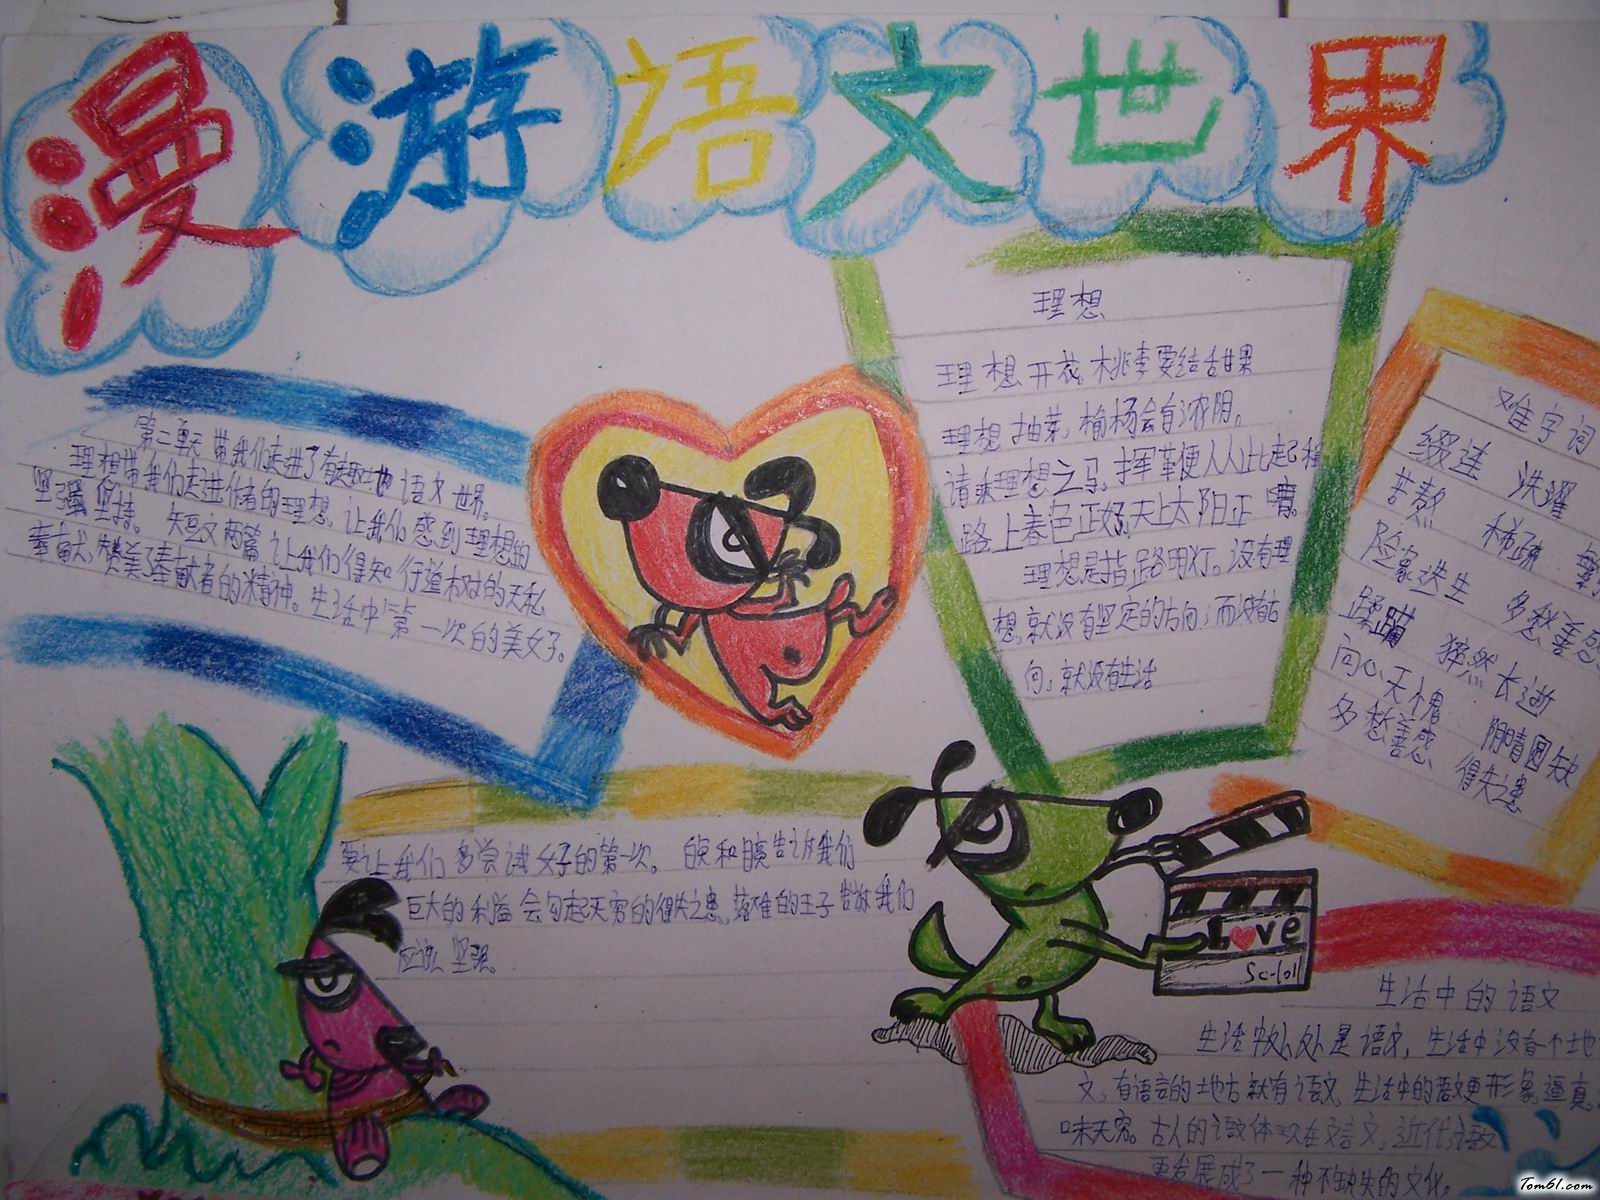 漫游语文世界
第二单元带我们走进了有趣地语文世界。
理想带我们走进作者的理想,让我们感到理想的
坚强 坚持。短文两篇让我们得知行道树的无私
奉献,赞美了奉献者的精神。生活中第一次的美好。
理想
理想开花,桃李要结甜果
理想抽芽,榆杨会有浓阴。
请乘理想之马,挥革便从此起程
路上春色正好,天上太阳正晴。
理想是指路明灯。没有理
想,就没有坚定的方向;而没有方
向,就没有生活
难字词
缀连 洗濯
苦熬 稀疏
险象迭生 多愁善感
蹂躏 猝然长逝
问心无愧 阴晴圆缺
多愁善感 得失之患
要让我们多尝试好的第一次。 告诉我们
巨大的利益会勾起无穷的得失之患,落难的王子告诉我们
应该坚强
Love
Sc-loll
生活中的语文
生活中处处是语文,生活中没有个地
文,有语言的地方就有语文,生活中的语文更形象,逼真。
味无穷。古人的语文体现在文言文,近代语文
更发展成了一种不缺失的文化。
Tom61.com